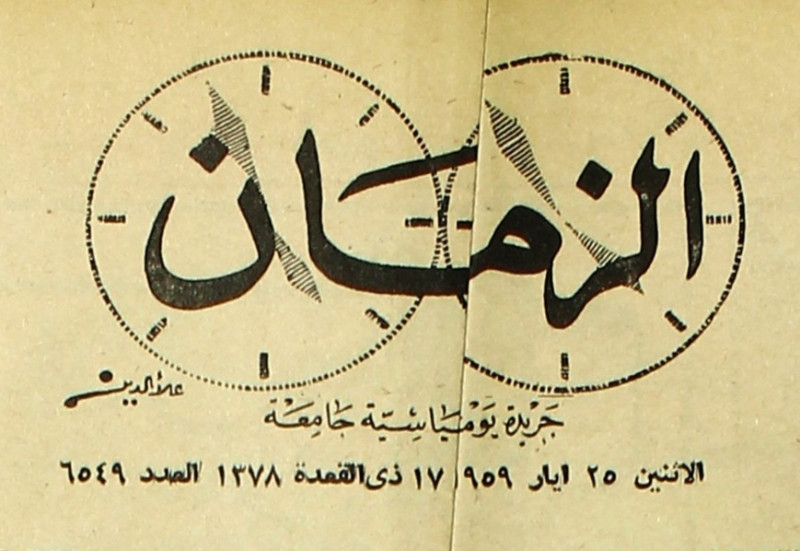 الزمان
علاءالدين
جَريدة يَوْميَا سِيَّة جَامِعَة
الاثنين ٢٥ ايار ٩٥٩ ١٧ ذى القعدة ١٣٧٨ العدد ٦٥٤٩